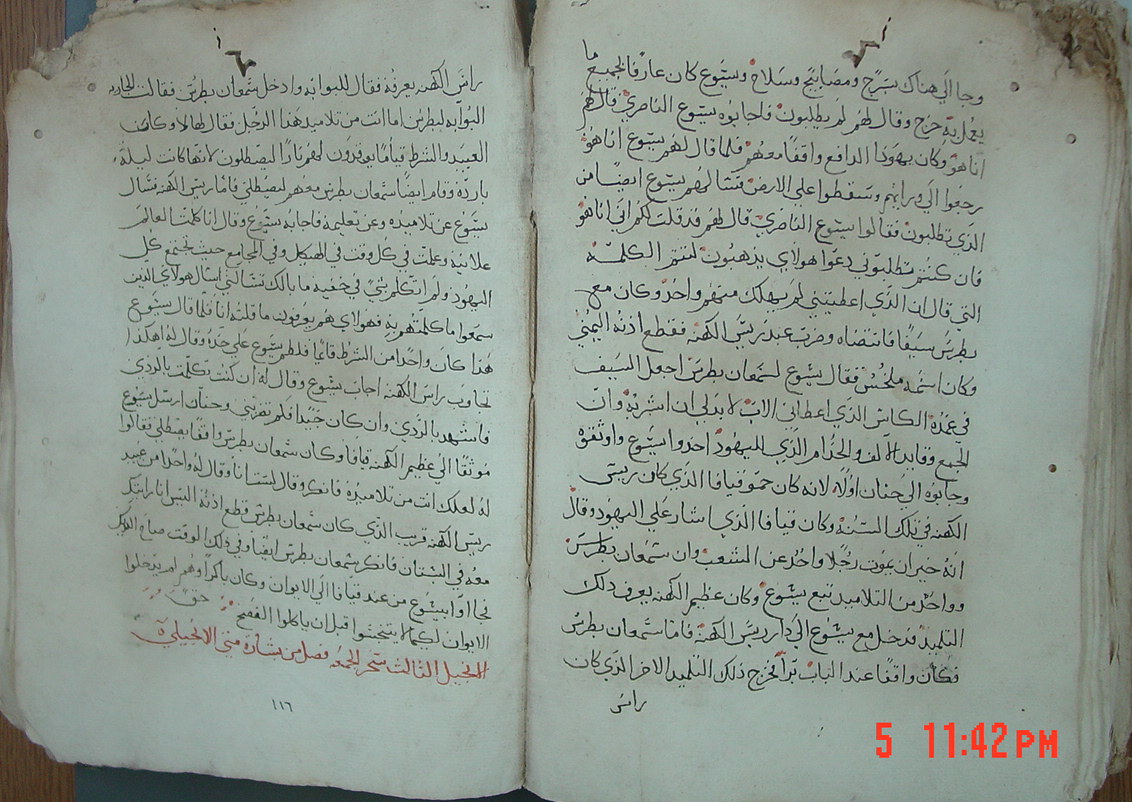 وجا الي هناك بسرج ومصابيح وسلاح وسيوع كان عارفا بجميع ما
يعمل به خرج وقال لهم لمن يطلبون فاجابوه يسوع الناصري قال لهم
انا هو وكان يهودا الدافع واقفا معهم فلما قال لهم يسوع انا هو
رجعوا الي ورايهم وسقطوا علي الارض فسالهم يسوع ايضا من
الذي تطلبون فقالوا يسوع الناصري قال لهم قد قلت لكم اني انا هو
فان كنتم تطلبوني دعوا هولاي يذهبون لتتم الكلمة
التي قال ان الذي اعطيتني لم يهلك منهم واحد وكان مع
بطرس سيفا فانتضاه وضرب عبد ريس الكهنه فقطع اذنه اليمني
وكان اسمه ملخس فقال يسوع لسمعان بطرس اجعل السيف
في غمده الكاس الذي اعطاني الاب لا بد لي ان اشربه وان
الجمع وقايد الالف والخدام الذي لليهود اخدوا يسوع واوثقوه
وجابوه الي حنان اولا لانه كان حمو قيافا الذي كان ريس
الكهنه في تلك السنه وكان قيافا الذي اشار علي اليهود وقال
انه خير ان يموت رجلا واحد عن الشعب وان سمعان بطرس
وواحد من التلاميد تبع يسوع وكان عظيم الكهنه يعرف دلك
التلميد فدخل مع يسوع الي دار ريس الكهنة فاما سمعان بطرس
فكان واقفا عند الباب برا فخرج ذلك التلميد الاخر الذي كان
راس
راس الكهنه يعرفه فقال للبوابه وادخل سمعان بطرس فقالت الجاريه
البوابه لبطرس اما انت من تلاميد هدا الرجل فقال لها لا وكانت
العبيد والشرط قياما يوقدون لهم نارا ليصطلون لانها كانت ليلة
بارده وقام ايضا سمعان بطرس معهم ليصطلي فاما ريس الكهنه فسال
يسوع عن تلاميده وعن تعليمه فاجابه يسوع وقال انا كلمت العالم
علانيه وعلمت في كل وقت في الهيكل وفي المجامع حيث يجتمع كل
اليهود ولم اتكلم بشي في خفيه ما بالك تسالني اسال هولاي الدين
سمعوا ما كلمتهم به فهولاي هم يعرفون ما قلته انا فلما قال يسوع
هدا كان واحدا من الشرط قايما فلطم يسوع علي خده وقال له اهكدا
تجاوب راس الكهنه اجاب يسوع وقال له ان كنت تكلمت بالردي
فاشهد بالردي وان كان جيدا فلم تضربني وحنان ارسل يسوع
موثقا الي عظيم الكهنه قيافا وكان سمعان بطرس واقفا يصطلي فقالوا
له لعلك انت من تلاميده فانكر وقال لست انا وقال له واحد من عبيد
ريس الكهنه قريب الدي كان سمعان بطرس قطع ادنه اليس انا رايتك
معه في البستان فانكر سمعان بطرس ايضا وفي دلك الوقت صاح الديك
فجااوا بيسوع من عند قيافا الي الايوان وكان باكرا وهم لم يدخلوا
الايوان لكيما لا يتنجسوا قبل ان ياكلوا الفصح حق
الانجيل الثالث سحر الجمعه فصل من بشارة متي الانجيلي
١١٦
5 11:42PM